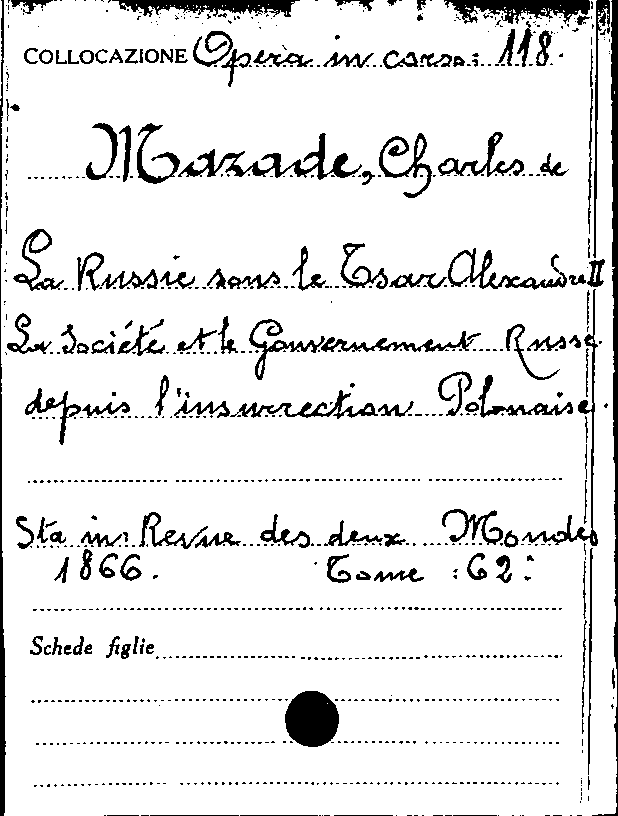 COLLOCAZIONE Opera in corso: 118.
Mazade, Charles de
La Russie sous le Tsar Alexandre II
La Société et le Gouvernement Russe
depuis l'insurrection Polonaise.
Sta in: Revue des deux Mondes
1866. Tome : 62:
Schede figlie